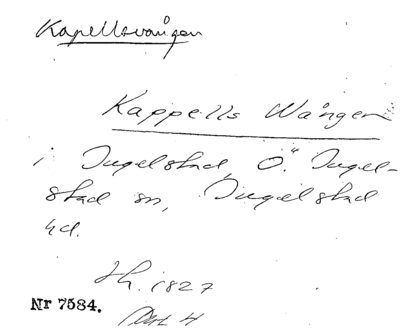 Kapellsvången
Kappells Wången
i Ingelstad, Ö. Ingel-
stad sn, Ingelstad
hd.
1827
Nr 7584.